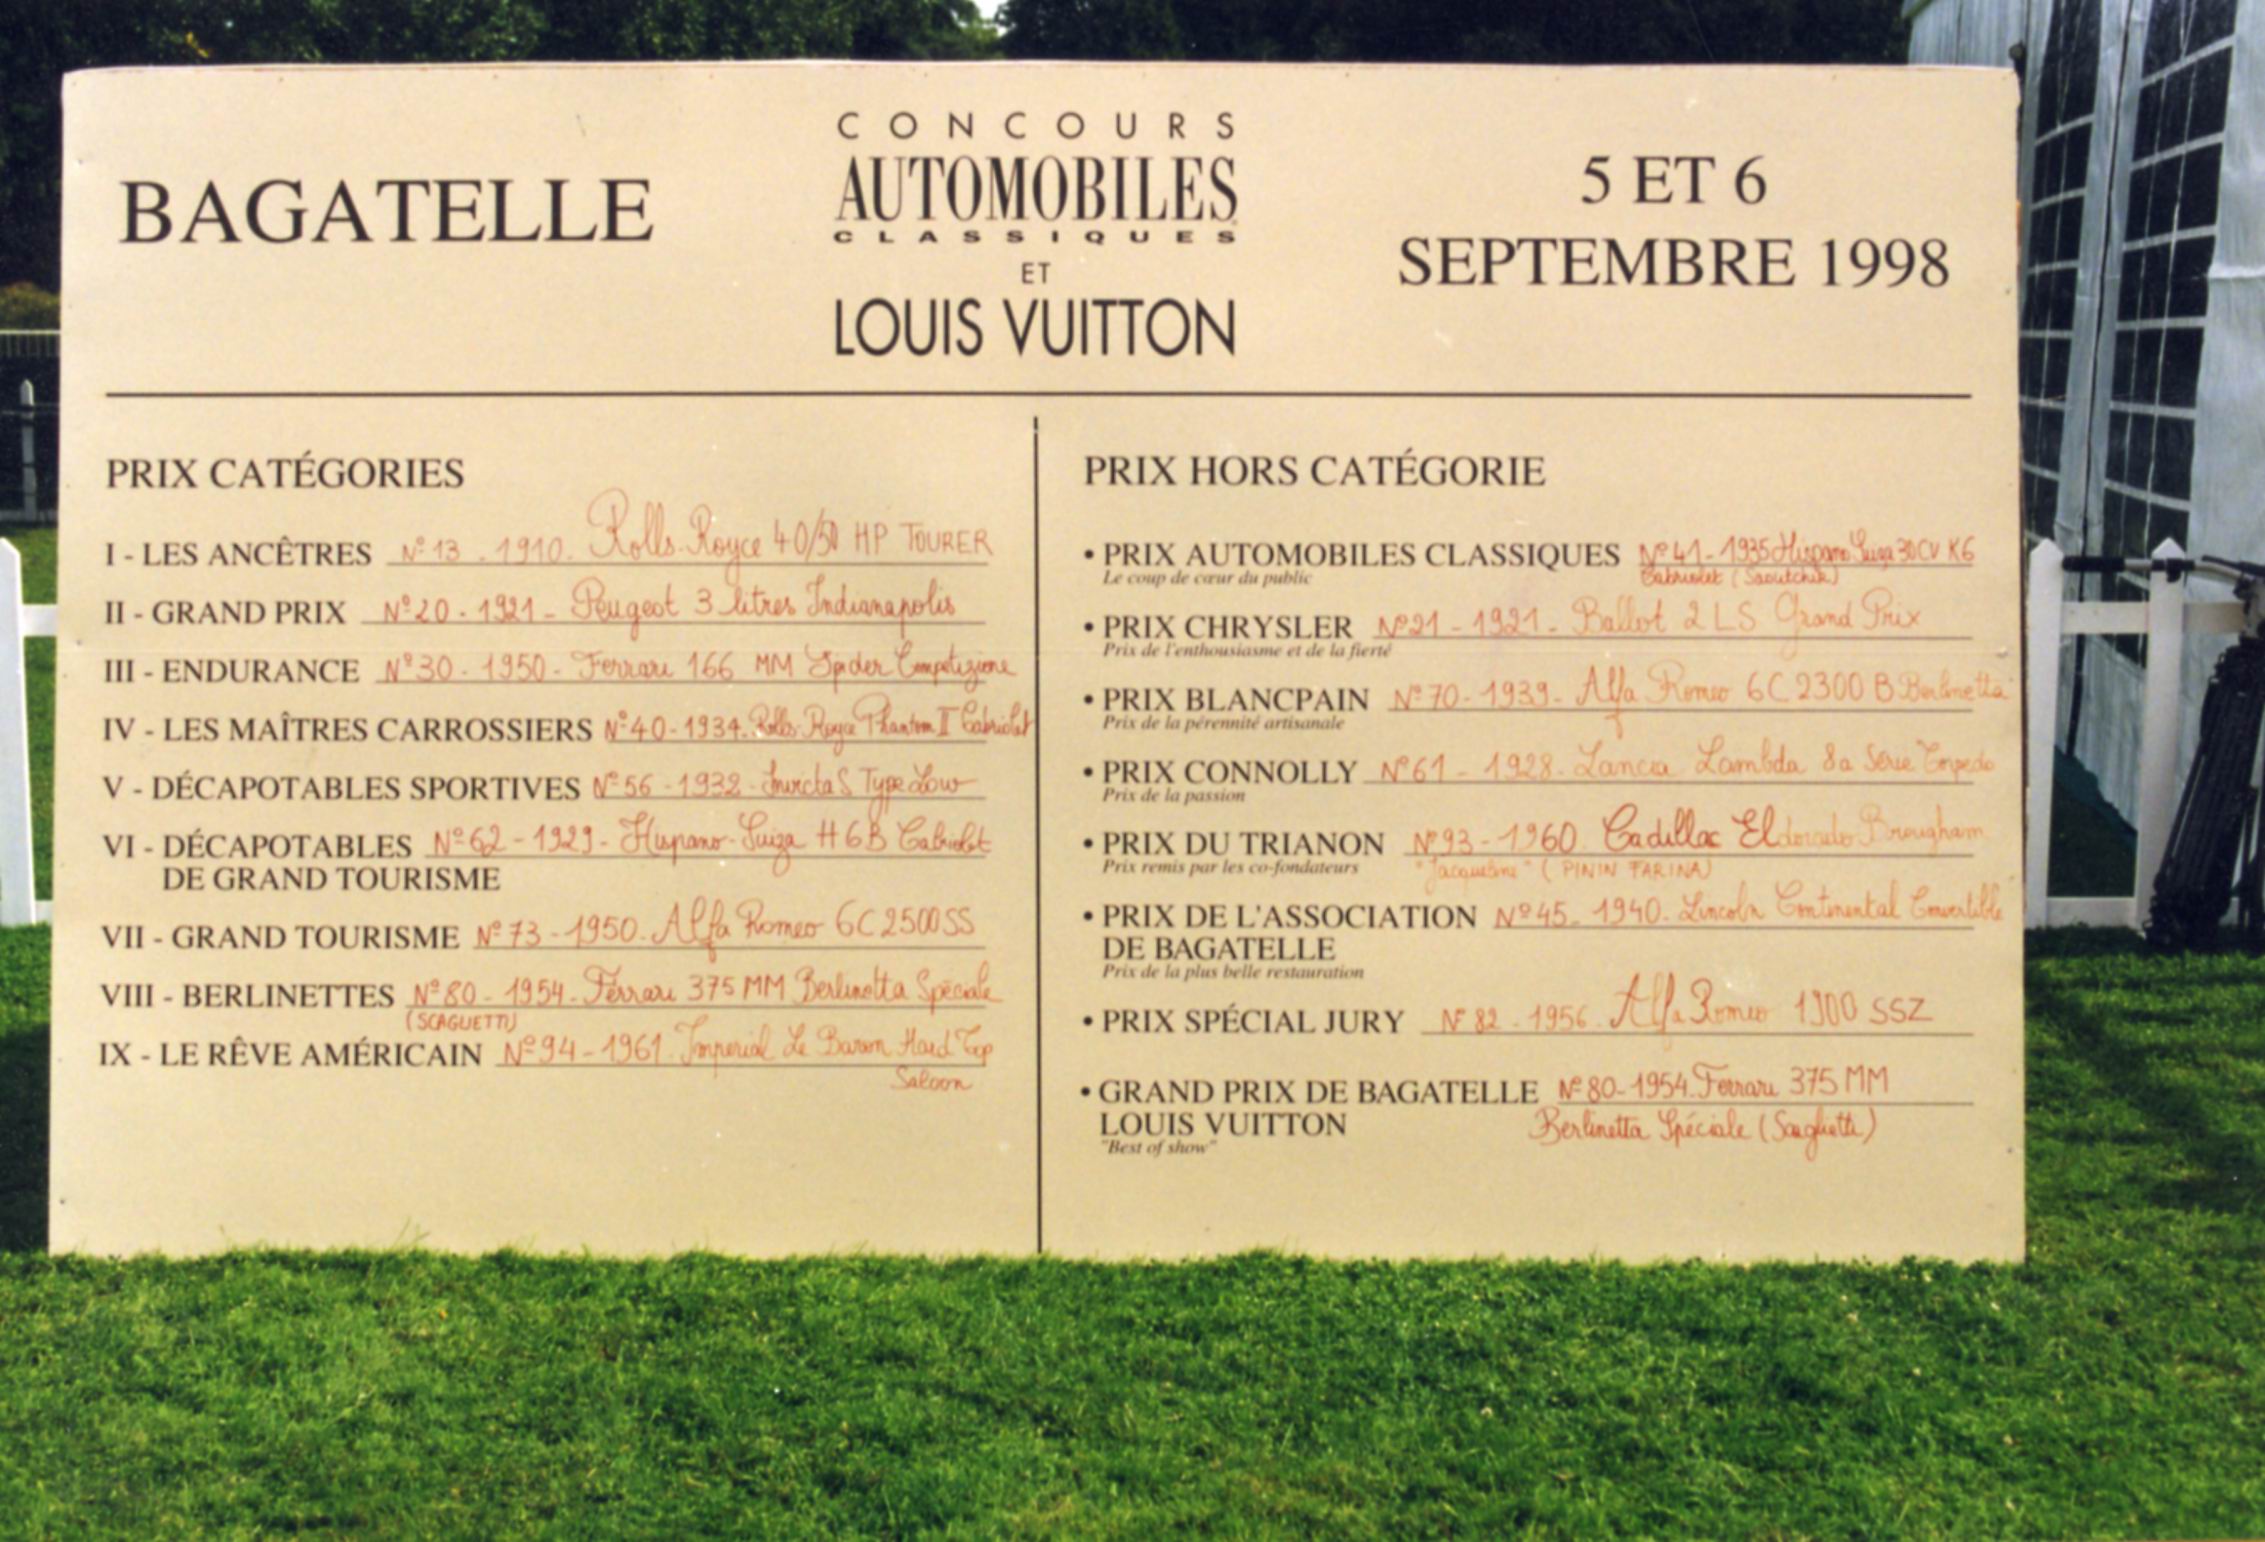 BAGATELLE
CONCOURS
AUTOMOBILES
CLASSIQUES
ET
LOUIS VUITTON
5 ET 6
SEPTEMBRE 1998
PRIX CATÉGORIES
I - LES ANCÊTRES N° 13 - 1910. Rolls-Royce 40/50 HP TOURER
II - GRAND PRIX N° 20 - 1921 - Peugeot 3 litres Indianapolis
III - ENDURANCE N° 30 - 1950 - Ferrari 166 MM Spider Competizione
IV - LES MAÎTRES CARROSSIERS N° 40 - 1934. Rolls-Royce Phantom II Cabriolet
V - DÉCAPOTABLES SPORTIVES N° 56 - 1932 - Invicta S Type Low
VI - DÉCAPOTABLES N° 62 - 1929 - Hispano-Suiza H6B Cabriolet
DE GRAND TOURISME
VII - GRAND TOURISME N° 73 - 1950. Alfa Romeo 6C 2500 SS
VIII - BERLINETTES N° 80 - 1954 - Ferrari 375 MM Berlinetta Spéciale
(SCAGUETTI)
IX - LE RÊVE AMÉRICAIN N° 94 - 1961. Imperial Le Baron Hard Top
Saloon
PRIX HORS CATÉGORIE
• PRIX AUTOMOBILES CLASSIQUES N° 41 - 1935 Hispano Suiza 30CV K6
Le coup de cœur du public Cabriolet (Saoutchik)
• PRIX CHRYSLER N° 21 - 1921 - Ballot 2 LS Grand Prix
Prix de l'enthousiasme et de la fierté
• PRIX BLANCPAIN N° 70 - 1939 - Alfa Romeo 6C 2300 B Berlinetta
Prix de la pérennité artisanale
• PRIX CONNOLLY N° 61 - 1928. Lancia Lambda 8a Série Torpedo
Prix de la passion
• PRIX DU TRIANON N° 93 - 1960. Cadillac Eldorado Brougham
Prix remis par les co-fondateurs "Jacqueline" (PININ FARINA)
• PRIX DE L'ASSOCIATION N° 45 - 1940. Lincoln Continental Convertible
DE BAGATELLE
Prix de la plus belle restauration
• PRIX SPÉCIAL JURY N° 82 - 1956. Alfa Romeo 1900 SSZ
• GRAND PRIX DE BAGATELLE N° 80 - 1954. Ferrari 375 MM
LOUIS VUITTON Berlinetta Spéciale (Scaglietti)
"Best of show"